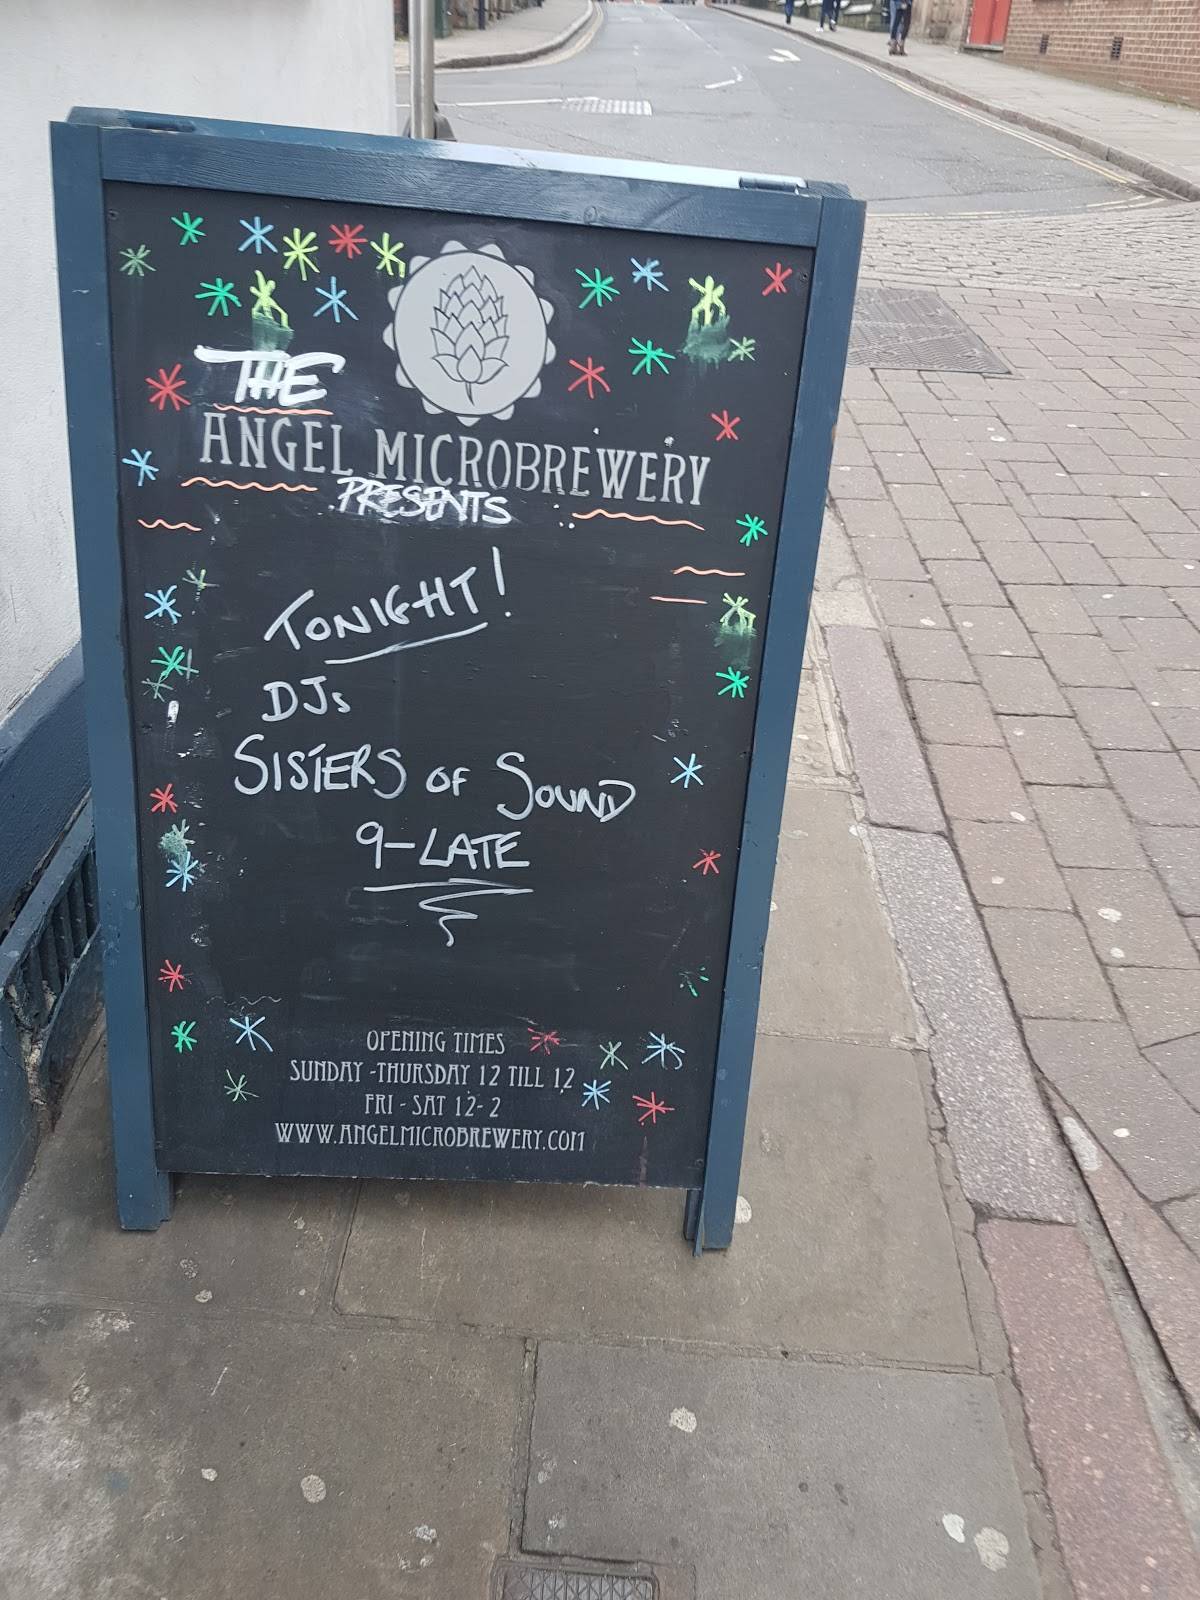 THE
ANGEL MICROBREWERY
PRESENTS
TONIGHT!
DJs
SISTERS OF SOUND
9-LATE
OPENING TIMES
SUNDAY -THURSDAY 12 TILL 12
FRI - SAT 12- 2
WWW.ANGELMICROBREWERY.COM